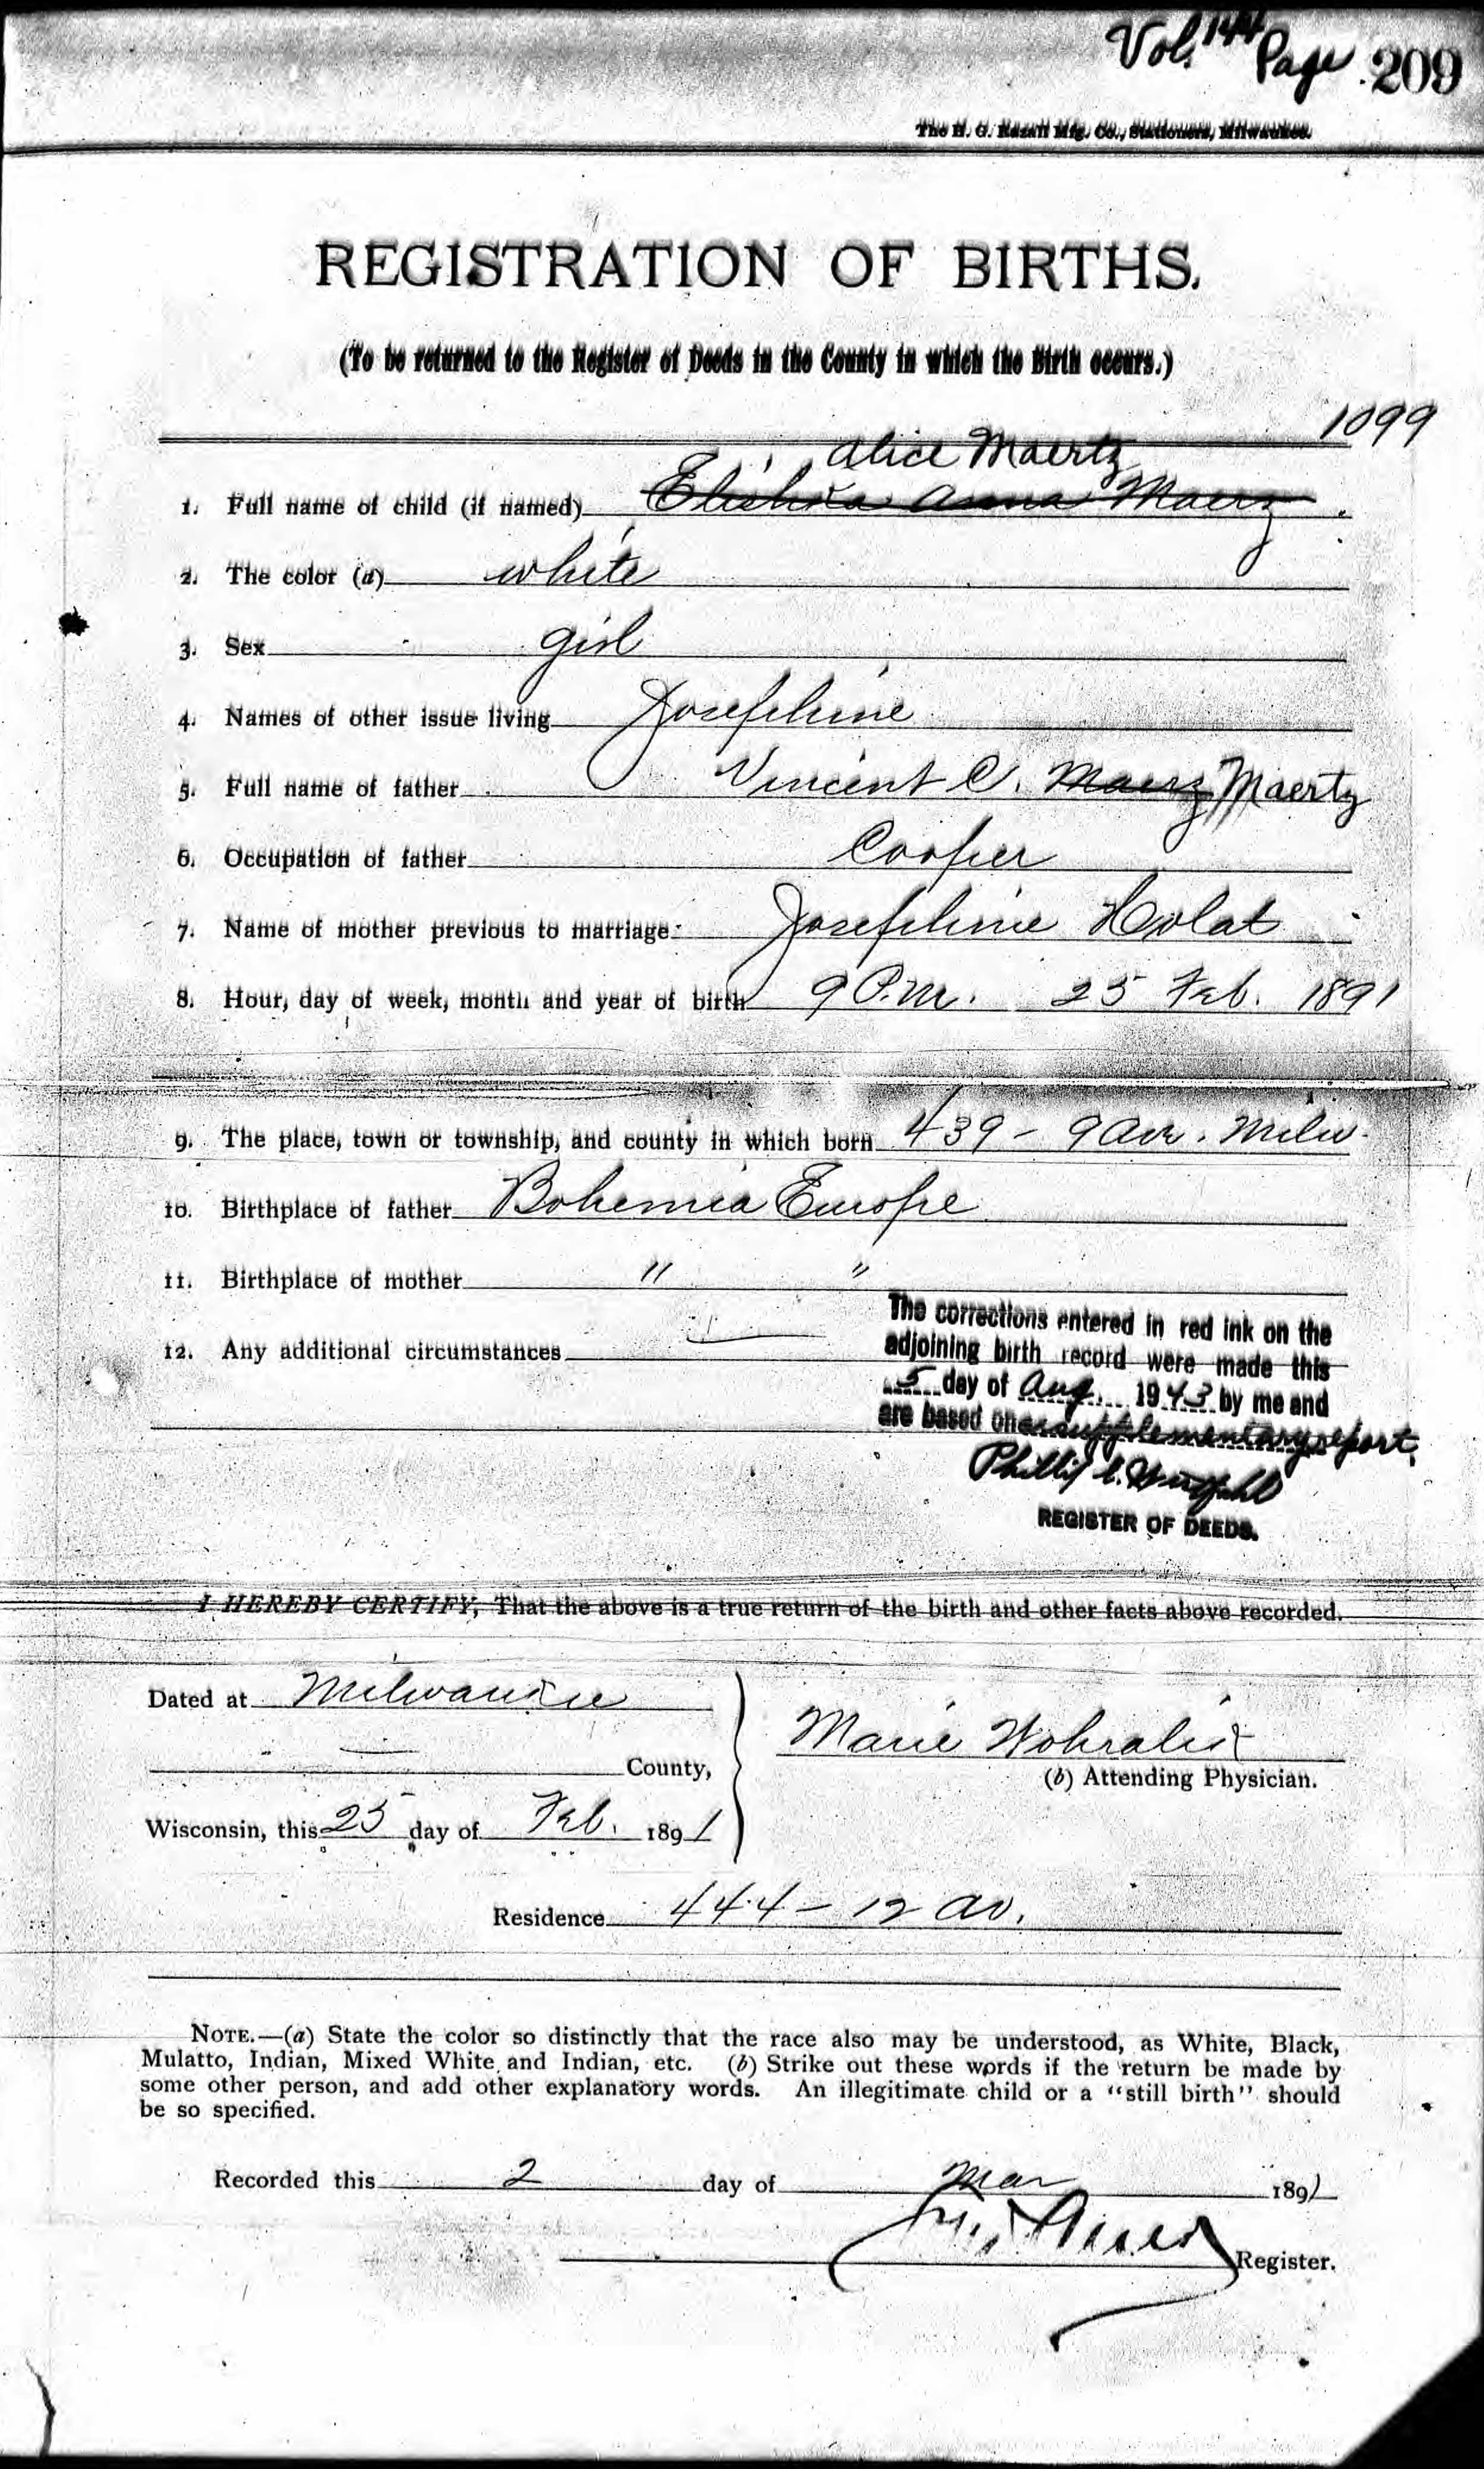 Vol. 144 Page 209
The H. G. Razall Mfg. Co., Stationers, Milwaukee.
REGISTRATION OF BIRTHS.
(To be returned to the Register of Deeds in the County in which the Birth occurs.)
1099
Alice Maertz
1. Full name of child (if named) Anna Maerz
2. The color (a) white
3. Sex girl
4. Names of other issue living Josephine
5. Full name of father Vincent C. Maerz Maertz
6. Occupation of father Cooper
7. Name of mother previous to marriage Josephine Holat
8. Hour, day of week, month and year of birth 9 P.M. 25 Feb. 1891
9. The place, town or township, and county in which born 439 - 9 Ave. Milw.
10. Birthplace of father Bohemia Europe
11. Birthplace of mother " "
12. Any additional circumstances —
The corrections entered in red ink on the
adjoining birth record were made this
5 day of Aug. 1943 by me and
are based on a supplementary report.
Phillip C.
REGISTER OF DEEDS.
I HEREBY CERTIFY, That the above is a true return of the birth and other facts above recorded.
Dated at Milwaukee
County,
Marie
(b) Attending Physician.
Wisconsin, this 25 day of Feb. 1891
Residence 444 - 12 av.
NOTE.—(a) State the color so distinctly that the race also may be understood, as White, Black,
Mulatto, Indian, Mixed White and Indian, etc. (b) Strike out these words if the return be made by
some other person, and add other explanatory words. An illegitimate child or a "still birth" should
be so specified.
Recorded this 2 day of Mar 1891
Register.